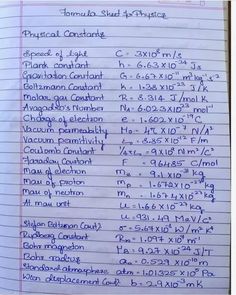 Formula Sheet for Physics
Physical Constants
Speed of light C = 3×10⁸ m/s
Plank constant h = 6.63×10⁻³⁴ Js
Gravitation Constant G = 6.67×10⁻¹¹ m³kg⁻¹s⁻²
Boltzmann Constant k = 1.38×10⁻²³ J/K
Molar gas Constant R = 8.314 J/mol K
Avogadro's Number NA = 6.023×10²³ mol⁻¹
Charge of electron e = 1.602×10⁻¹⁹ C
Vacuum permeability μ₀ = 4π×10⁻⁷ N/A²
Vacuum permittivity ε₀ = 8.85×10⁻¹² F/m
Coulomb Constant 1/4πε₀ = 9×10⁹ Nm²/C²
Faraday Constant F = 96485 C/mol
Mass of electron me = 9.1×10⁻³¹ kg
Mass of proton mp = 1.6726×10⁻²⁷ kg
Mass of neutron mn = 1.6749×10⁻²⁷ kg
At. mass unit u = 1.66×10⁻²⁷ kg
u = 931.49 MeV/c²
Stefan Boltzmann Const. σ = 5.67×10⁻⁸ W/m²K⁴
Rydberg Constant R∞ = 1.097×10⁷ m⁻¹
Bohr magneton μB = 9.27×10⁻²⁴ J/T
Bohr radius a₀ = 0.529×10⁻¹⁰ m
Standard atmosphere atm = 1.01325×10⁵ Pa
Wien displacement Const. b = 2.9×10⁻³ mK